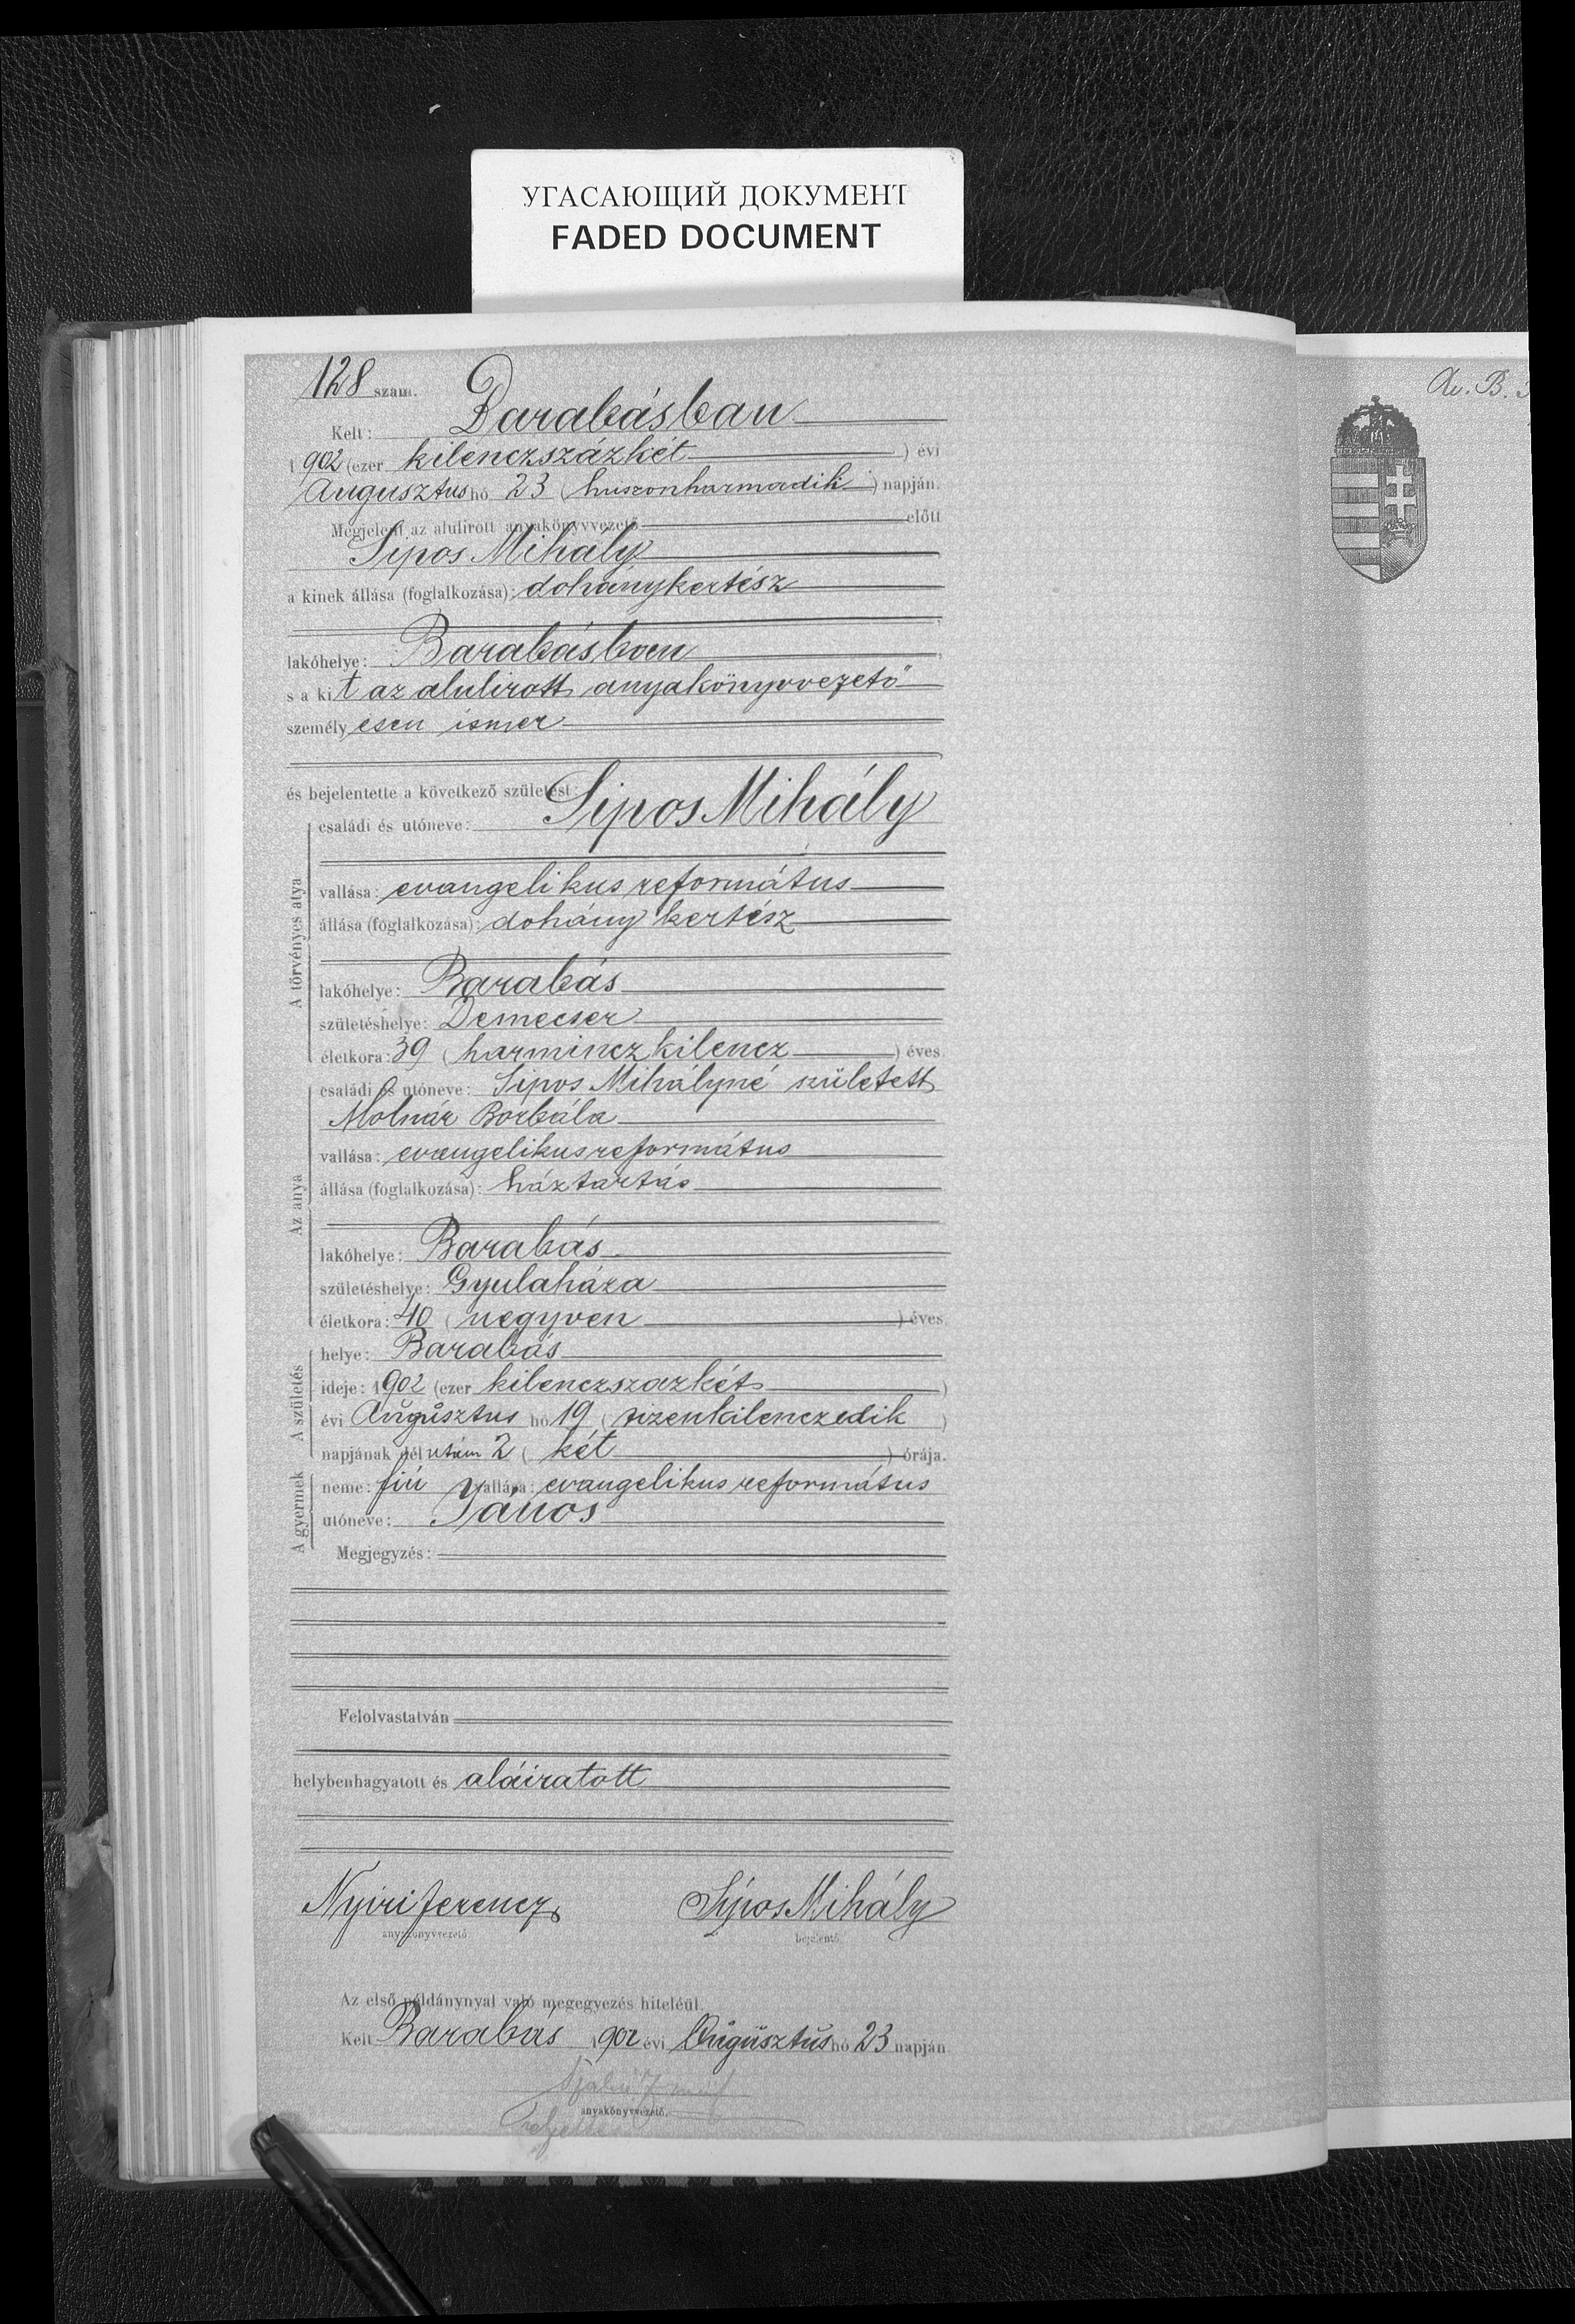 УГАСАЮЩИЙ ДОКУМЕНТ
FADED DOCUMENT
128 szám.
Kelt: Barabásban
1902 (ezer kilenczszázkét) évi
Augusztus hó 23 (huszonharmadik) napján.
Megjelent az alulirott anyakönyvvezető előtt
Sipos Mihály
a kinek állása (foglalkozása): dohánykertész
lakóhelye: Barabásban
s a kit az alulirott anyakönyvvezető
személyesen ismer
és bejelentette a következő születést:
A törvényes atya
családi és utóneve: Sipos Mihály
vallása: evangelikus református
állása (foglalkozása): dohány kertész
lakóhelye: Barabás
születéshelye: Demecser
életkora: 39 (harmincz kilencz) éves.
Az anya
családi és utóneve: Sipos Mihályné született
Molnár Borbála
vallása: evangelikus református
állása (foglalkozása): háztartás
lakóhelye: Barabás
születéshelye: Gyulaháza
életkora: 40 (negyven) éves.
A születés
helye: Barabás
ideje: 1902 (ezer kilenczszazkét)
évi Augusztus hó 19 (tizenkilenczedik)
napjának dél után 2 (két) órája.
A gyermek
neme: fiú vallása: evangelikus református
utóneve: János
Megjegyzés:
Felolvastatván
helybenhagyatott és aláiratott
Nyiri Ferencz Sipos Mihály
anyakönyvvezető. bejelentő.
Az első példánynyal való megegyezés hiteléül.
Kelt Barabás 1902 évi Augusztus hó 23 napján
Szabó
anyakönyvvezető.
Av. B.